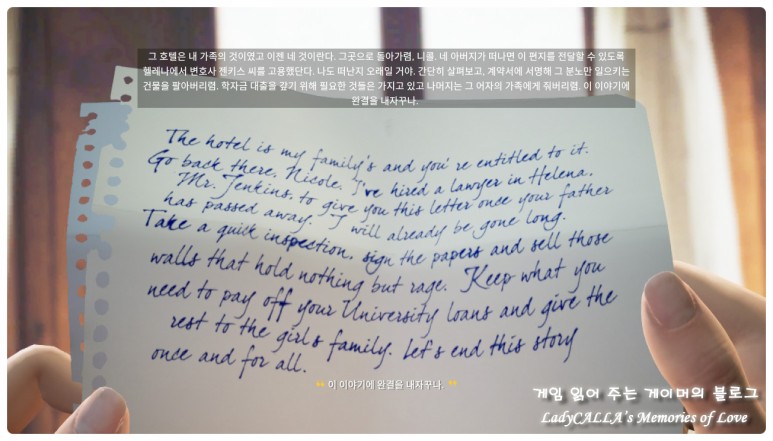 그 호텔은 내 가족의 것이였고 이젠 네 것이란다. 그곳으로 돌아가렴, 니콜. 네 아버지가 떠나면 이 편지를 전달할 수 있도록
헬레나에서 변호사 젠킨스 씨를 고용했단다. 나도 떠난지 오래일 거야. 간단히 살펴보고, 계약서에 서명해 그 분노만 일으키는
건물을 팔아버리렴. 학자금 대출을 갚기 위해 필요한 것들은 가지고 있고 나머지는 그 여자의 가족에게 줘버리렴. 이 이야기에
완결을 내자꾸나.
The hotel is my family's and you're entitled to it.
Go back there, Nicole. I've hired a lawyer in Helena,
Mr. Jenkins, to give you this letter once your father
has passed away. I will already be gone long.
Take a quick inspection, sign the papers and sell those
walls that hold nothing but rage. Keep what you
need to pay off your University loans and give the
rest to the girls family. Let's end this story
once and for all.
❝ 이 이야기에 완결을 내자꾸나. ❞
게임 읽어 주는 게이머의 블로그
LadyCALLA's Memories of Love